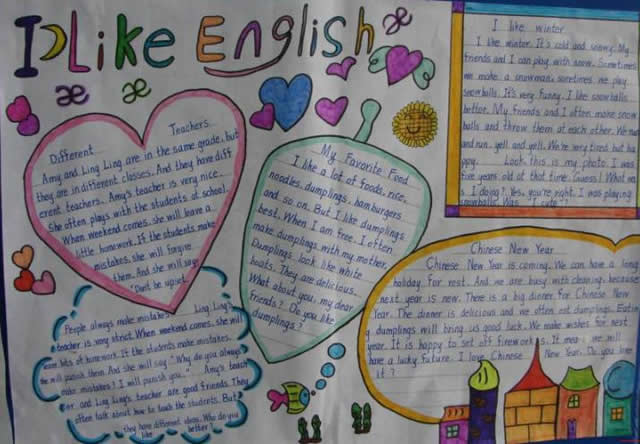 I Like English
æ
æ
æ
Different Teachers
Amy and Ling Ling are in the same grade, but
they are in different classes. And they have diff
erent teachers. Amy's teacher is very nice.
She often plays with the students at school.
When weekend comes, she will leave a
little homework. If the students make
mistakes, she will forgive
them. And she will say
"Don't be upset.
People always make mistakes Ling Ling's
teacher is very strict. When weekend comes, she will
leave lots of homework. If the students make mistakes,
she will punish them. And she will say "Why do you always
make mistakes? I will punish you." Amy's teach
er and Ling Ling's teacher are good friends. They
often talk about how to teach the students. But
they have different ideas. Who do you
like better
My Favorite Food
I like a lot of foods, rice,
noodles, dumplings, hamburgers
and so on. But I like dumplings
best. When I am free, I often
make dumplings with my mother.
Dumplings look like white
boats. They are delicious.
What about you, my dear
friends? Do you like
dumplings?
I like winter
I like winter. It's cold and snowy. My
friends and I can play with snow. Sometimes
we make a snowman, sometimes we play
snowballs. It's very funny. I like snowballs
better. My friends and I often make snow
balls and throw them at each other. We
and run, yell and yell. We're very tired but ha
ppy. Look, this is my photo. I was
five years old at that time. Guess! What wa
s I doing? Yes, you're right. I was playing
snowballs. Was I cute
Chinese New Year
Chinese New Year is coming. We can have a long
holiday. For rest. And we are busy with cleaning, because
next year is new. There is a big dinner for Chinese New
Year. The dinner is delicious and we often eat dumplings. Eatin
g dumplings will bring us good luck. We make wishes for next
year. It is happy to set off fireworks. It mea we will
have a lucky future. I love Chinese New Year. Do you like
it?